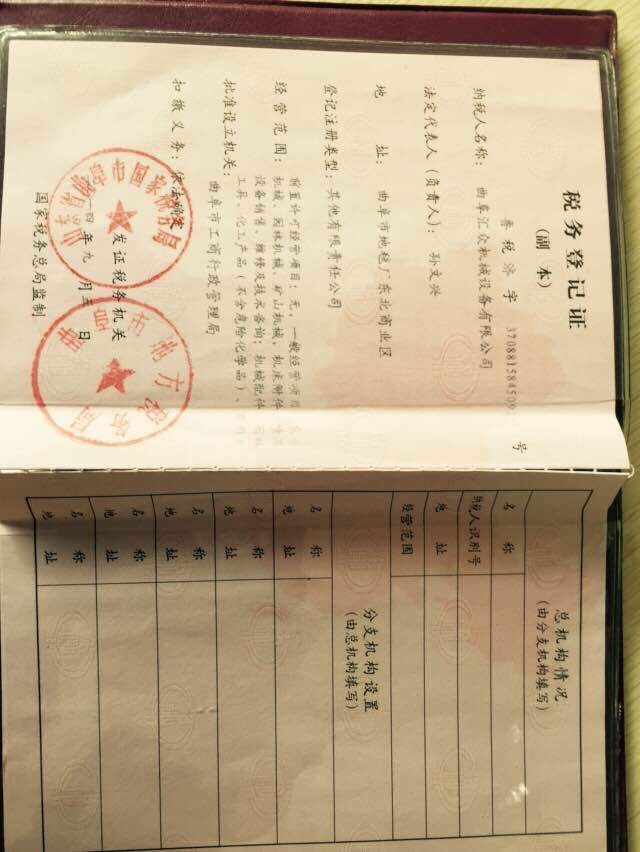 税务登记证
(副本)
鲁税济字 37088158450 号
纳税人名称：曲阜汇众机械设备有限公司
法定代表人（负责人）：孙文兴
地 址：曲阜市地毯厂东北商业区
登记注册类型：其他有限责任公司
经营范围：前置许可经营项目：无；一般经营项目
机械、园林机械、矿山机械、机床附件
设备销售、维修及技术咨询；机械配件
工具、化工产品（不含危险化学品）、
批准设立机关：曲阜市工商行政管理局
扣缴义务：依法确定
发证税务机关
四年九月五日
国家税务总局监制
曲阜市国家税务局
曲阜市地方税务局
总机构情况
(由分支机构填写)
名 称
纳税人识别号
地 址
经营范围
分支机构设置
(由总机构填写)
名 称
地 址
名 称
地 址
名 称
地 址
名 称
地 址
名 称
地 址